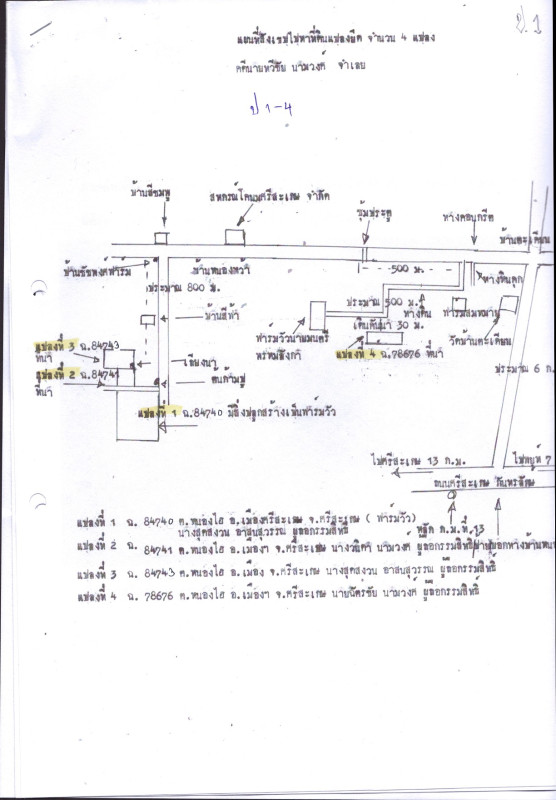 ป.1
แผนที่สังเขปไปหาที่ดินแปลงยึด จำนวน 4 แปลง
คดีนายทวีชัย นามวงค์ จำเลย
ป 1-4
บ้านสีชมพู
สหกรณ์โคนมศรีสะเกษ จำกัด
ซุ้มประตู
ทางคอนกรีต
บ้านตะเคียน
บ้านหนองหว้า
500 ม.
ทางหินคลุก
ประมาณ 800 ม.
บ้านสีฟ้า
ประมาณ 500 ม.
ทางดิน
เดินคันนา 30 ม.
ฟาร์มวัวนายมนตรี
แปลงที่ 4 ฉ.78676 ที่นา
วัดบ้านตะเคียน
แปลงที่ 3 ฉ.84743
ที่นา
เถียงนา
แปลงที่ 2 ฉ.84741
ที่นา
ต้นก้ามปู
ประมาณ 6 ก.
แปลงที่ 1 ฉ.84740 มีสิ่งปลูกสร้างเป็นฟาร์มวัว
ไปศรีสะเกษ 13 ก.ม.
ถนนศรีสะเกษ กันทรลักษ์
หลัก ก.ม.ที่ 13
แปลงที่ 1 ฉ. 84740 ต.หนองไฮ อ.เมืองศรีสะเกษ จ.ศรีสะเกษ ( ฟาร์มวัว)
นางสุดสงวน อาสบสุวรรณ ผู้ถือกรรมสิทธิ์
แปลงที่ 2 ฉ. 84741 ต.หนองไฮ อ.เมืองฯ จ.ศรีสะเกษ นามวงค์ ผู้ถือกรรมสิทธิ์
แปลงที่ 3 ฉ. 84743 ต.หนองไฮ อ.เมือง จ.ศรีสะเกษ นางสุดสงวน อาสบสุวรรณ ผู้ถือกรรมสิทธิ์
แปลงที่ 4 ฉ. 78676 ต.หนองไฮ อ.เมืองฯ จ.ศรีสะเกษ นายฉัตรชัย นามวงค์ ผู้ถือกรรมสิทธิ์